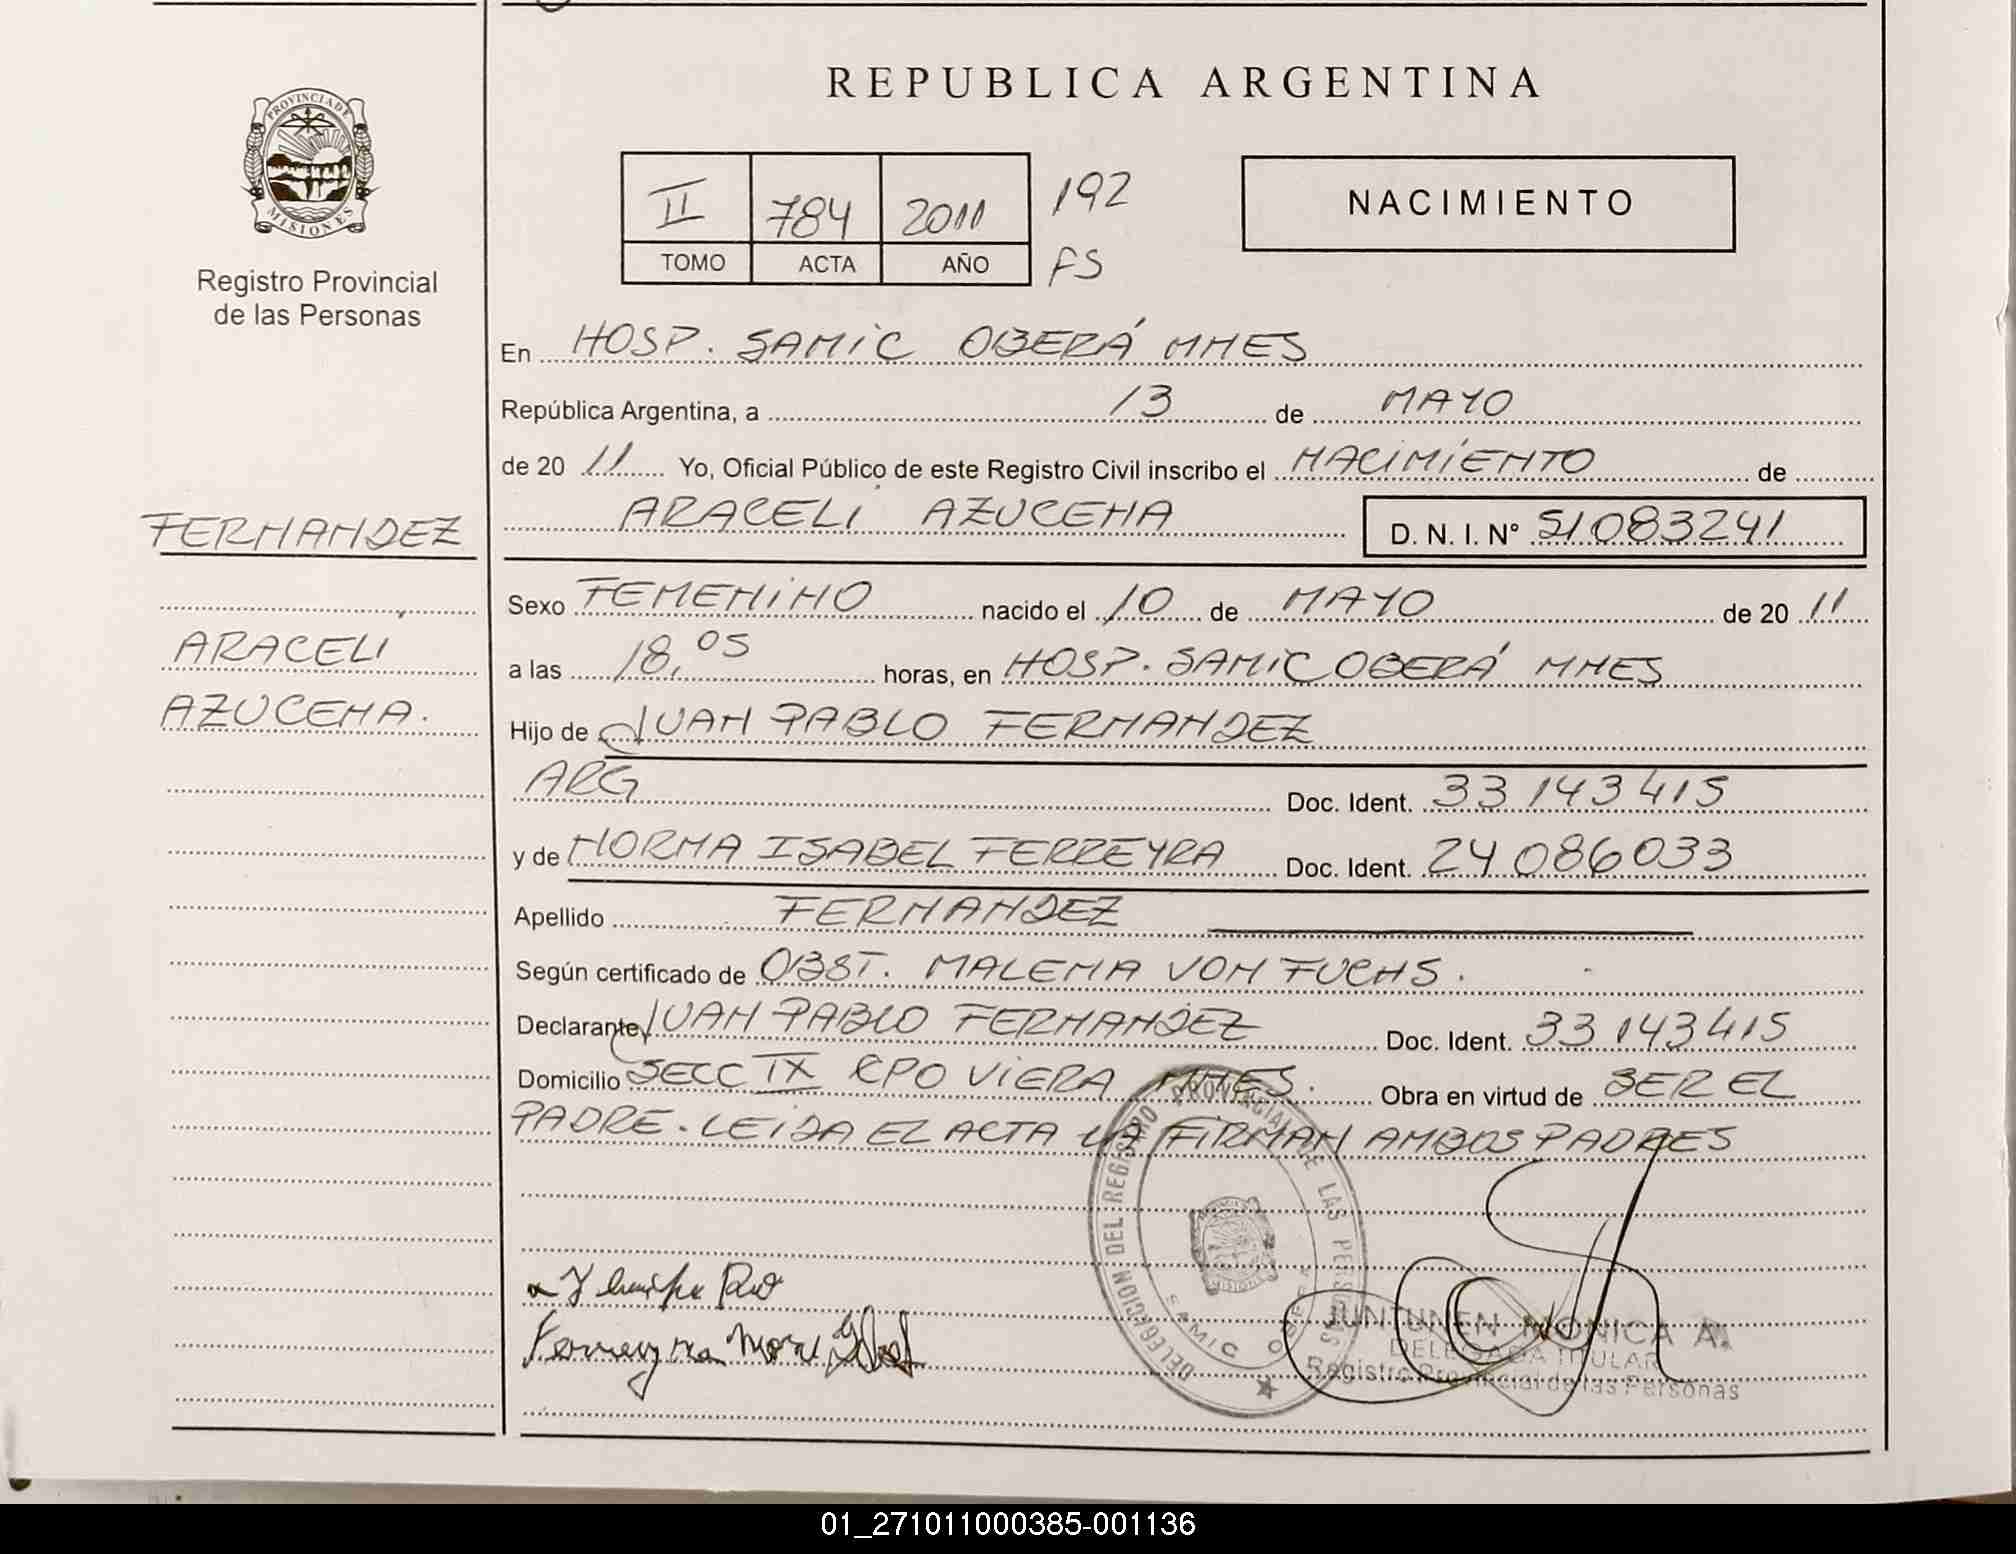 REPUBLICA ARGENTINA
PROVINCIA DE
MISIONES
Registro Provincial
de las Personas
II 784 2011 192
TOMO ACTA AÑO FS
NACIMIENTO
En HOSP. SAMIC OBERÁ MNES
República Argentina, a 13 de MAYO
de 20 11 Yo, Oficial Público de este Registro Civil inscribo el NACIMIENTO de
ARACELI AZUCENA D. N. I. Nº 51083241
FERNANDEZ
ARACELI
AZUCENA.
Sexo FEMENINO nacido el 10 de MAYO de 20 11
a las 18,05 horas, en HOSP. SAMIC OBERÁ MNES
Hijo de JUAN PABLO FERNANDEZ
ARG Doc. Ident. 33 143 415
y de NORMA ISABEL FERREYRA Doc. Ident. 24 086033
Apellido FERNANDEZ
Según certificado de OBST. MALENA VON FUCHS.
Declarante JUAN PABLO FERNANDEZ Doc. Ident. 33 143 415
Domicilio SECC IX CPO VIERA MNES. Obra en virtud de SER EL
PADRE. LEIDA EL ACTA LA FIRMAN AMBOS PADRES
DELEGACION DEL REGISTRO PROVINCIAL DE LAS PERSONAS
MISIONES
SAMIC OBERA
JUNTUNEN MONICA A.
DELEGADA TITULAR
Registro Provincial de las Personas
01_271011000385-001136